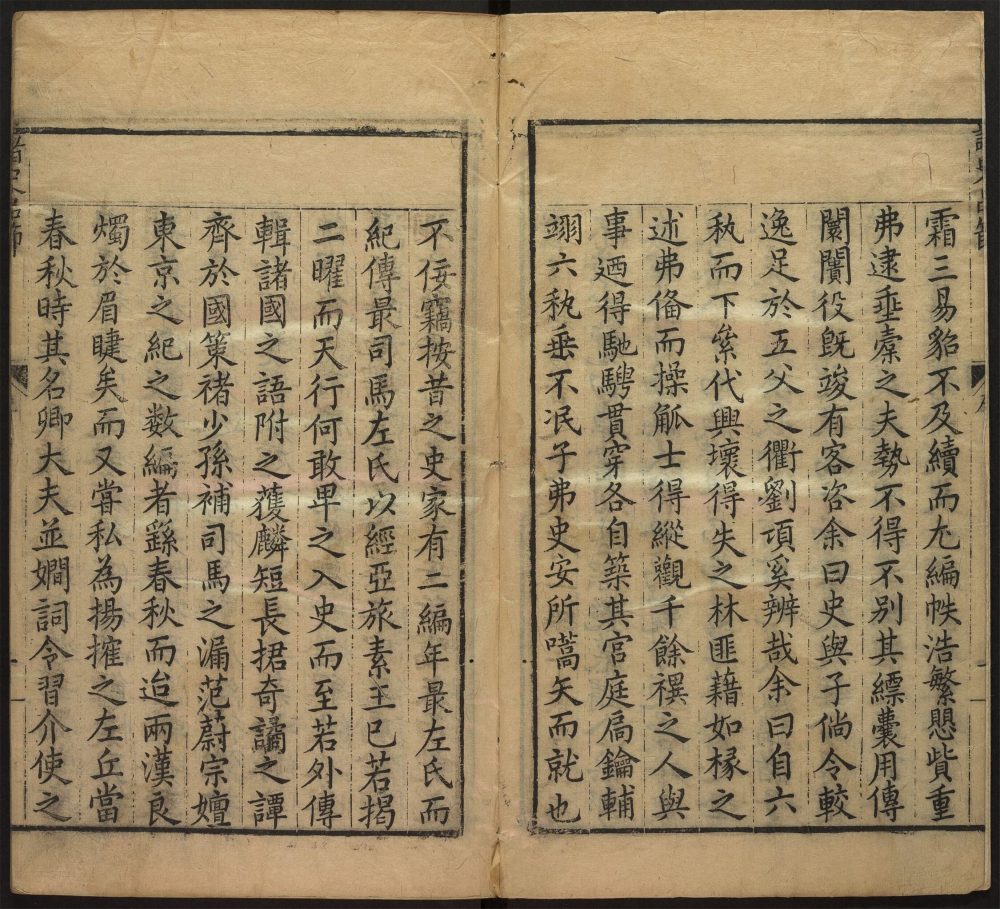 霜三易貂不及續而尢編帙浩繁懇貲重
弗逮垂橐之夫勢不得不別其縹囊用傳
闤闠役既竣有客咨余曰史與子倘令較
逸足於五父之衢劉項奚辨哉余曰自六
秇而下絫代興壞得失之林匪藉如椽之
述弗俻而操觚士得縱觀千餘禩之人與
事迺得馳騁貫穿各自築其宮庭扃鑰輔
翊六秇垂不泯子弗史安所嚆矢而就也
不佞竊按昔之史家有二編年最左氏而
紀傳最司馬左氏以經亞旅素王已若揭
二曜而天行何敢卑之入史而至若外傳
輯諸國之語附之獲麟短長捃奇譎之譚
齊於國策褚少孫補司馬之漏范蔚宗嬗
東京之紀之数編者繇春秋而迨兩漢良
燭於眉睫矣而又嘗私為揚搉之左丘當
春秋時其名卿大夫並嫺詞令習介使之
諸史品節